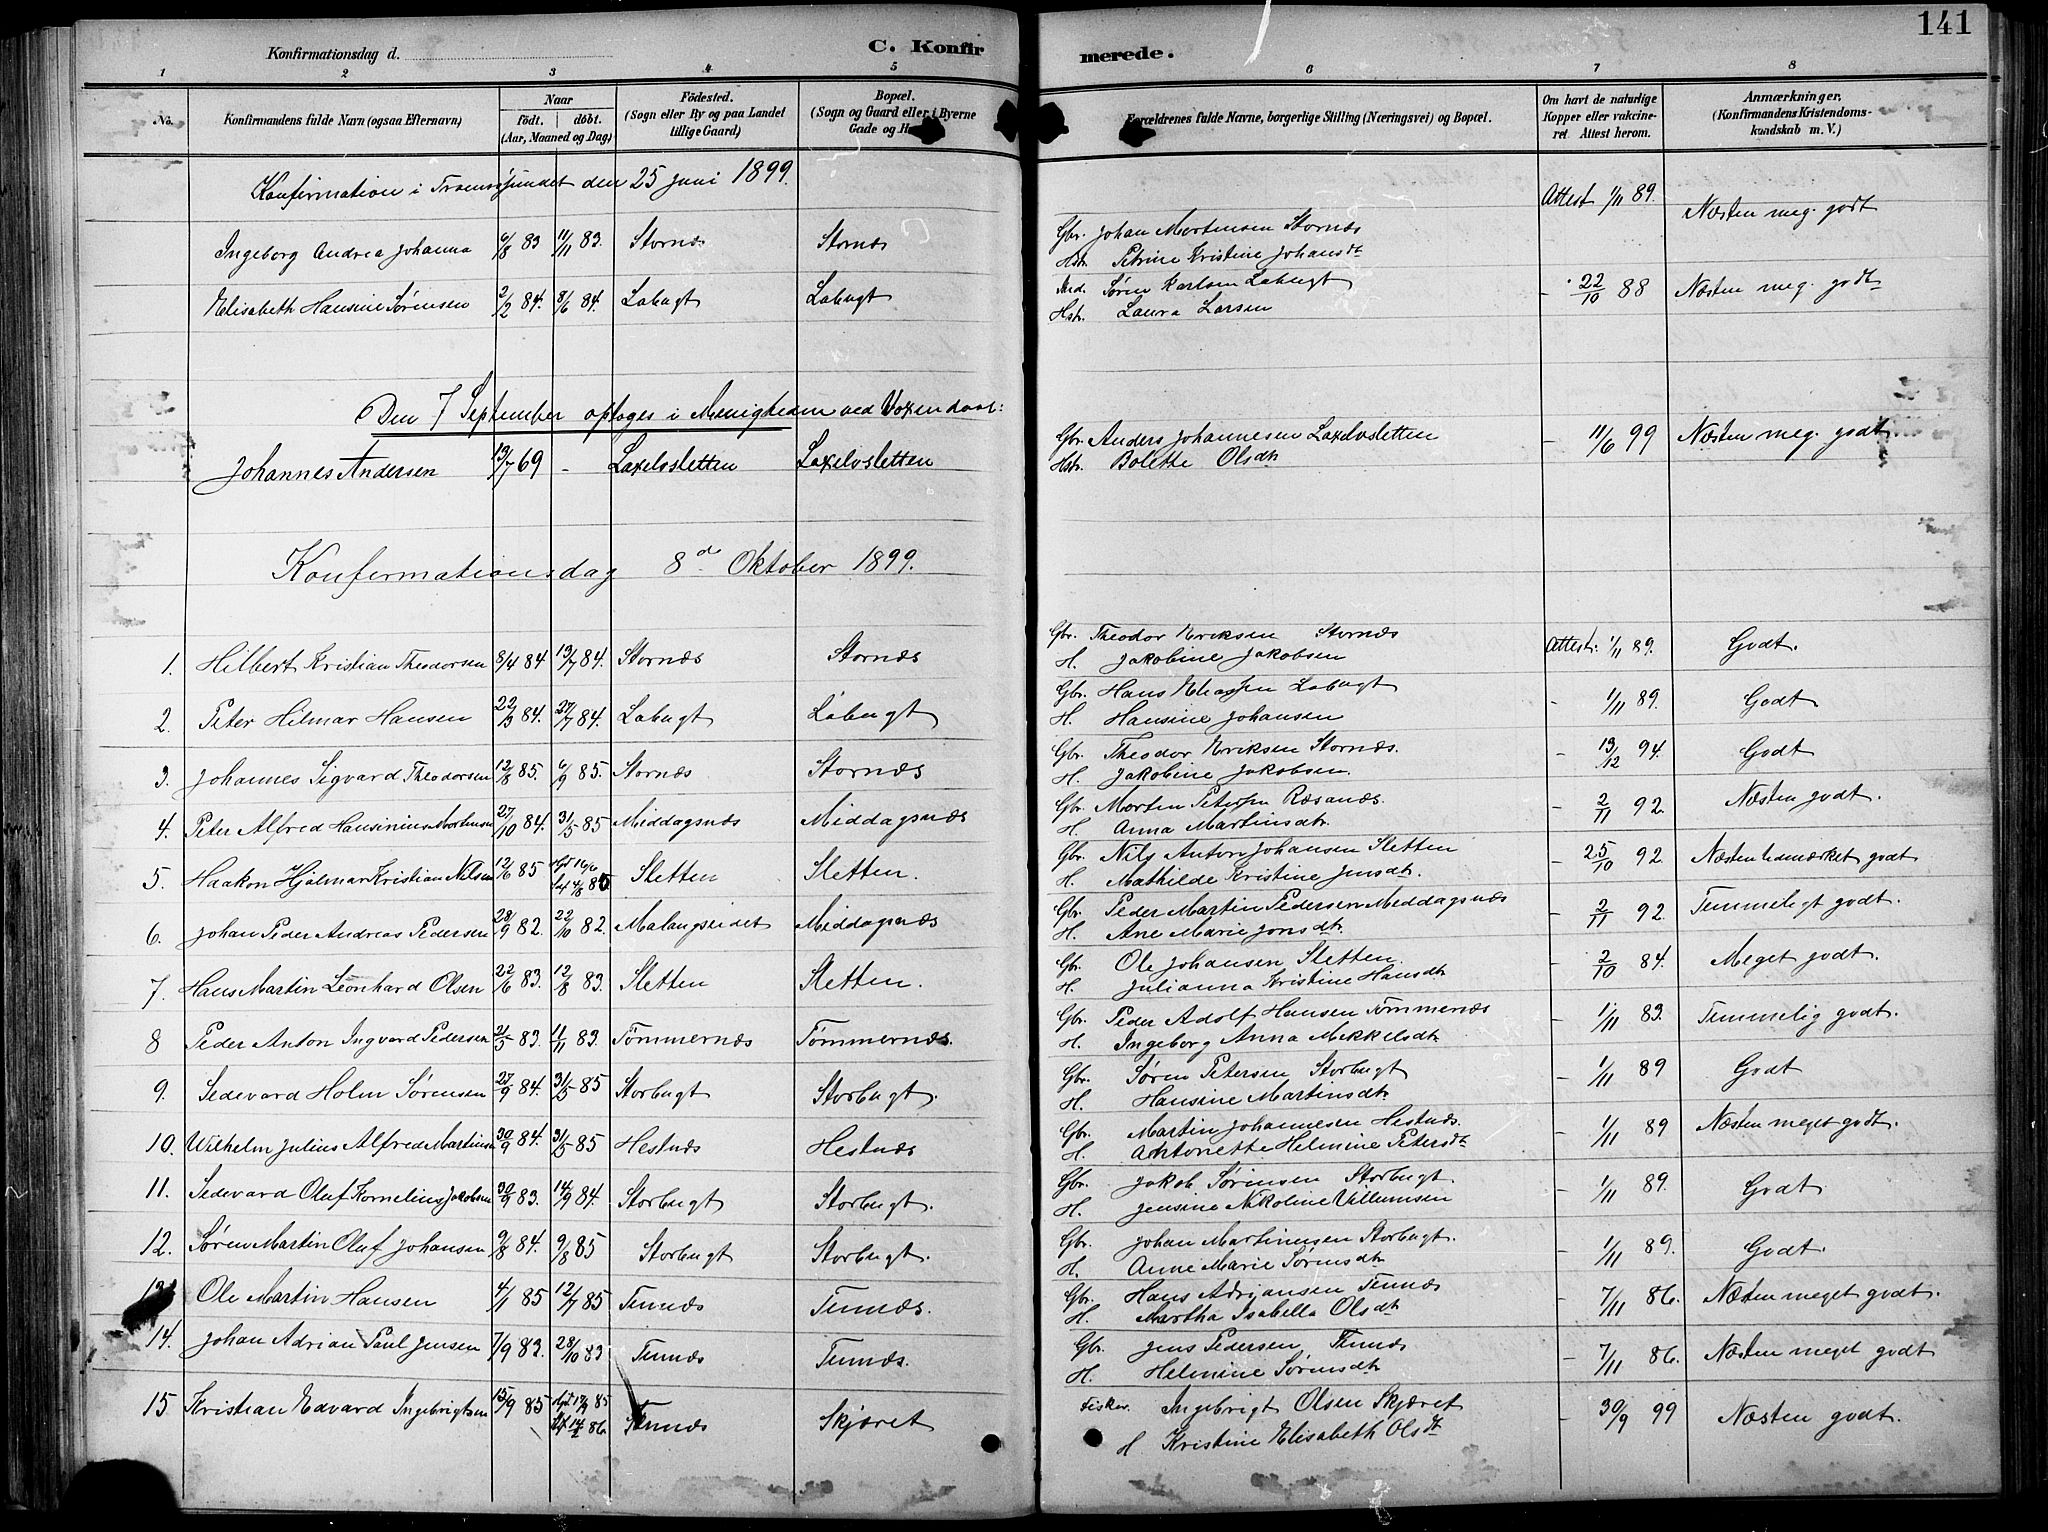 141
Konfirmationsdag d.
C. Konfirmerede.
1 2 3 4 5 6 7 8
No.
Konfirmandens fulde Navn (ogsaa Efternavn)
Naar
födt. döbt.
(Aar, Maaned og Dag)
Födested.
(Sogn eller By og paa Landet
tillige Gaard)
Bopæl.
(Sogn og Gaard eller i Byerne
Gade og
Forældrenes fulde Navne, borgerlige Stilling (Næringsvei) og Bopæl.
Om havt de naturlige
Kopper eller vakcine-
ret. Attest herom.
Anmærkninger,
(Konfirmandens Kristendoms-
kundskab m. V.)
Konfirmation i Tromsösundet den 25 juni 1899.
Ingeborg Andrea Johanna 6/8 83 11/11 83. Stornæs Stornæs Gbr. Johan Mortensen Stornæs Attest 1/11 89. Næsten meg. godt
Hstr. Petrine Kristine Johansdt
Elisabeth Hansine Sørensen 2/2 84. 8/6 84. Labugt Labugt Søren Karlsen Labugt - 22/10 88 Næsten meg. godt
Hstr. Laura Larsen
Den 7 September optoges i Menigheden ved Voxendaab:
Johannes Andersen 13/7 69 - Laxelvsletten Laxelvsletten Gbr. Anders Johannesen Laxelvsletten - 11/6 99 Næsten meg. godt
Hstr. Bolette Olsdtr
Konfirmationsdag 8de Oktober 1899.
1. Hilbert Kristian Theodorsen 8/4 84 13/7 84. Stornæs Stornæs Gbr. Theodor Eriksen Stornæs Attest. 1/11 89. Godt.
H. Jakobine Jakobsen
2. Peter Hilmar Hansen 22/3 84. 27/7 84. Labugt Labugt Gbr. Hans Eliassen Labugt - 1/11 89. Godt
H. Hansine Johansen
3. Johannes Sigvard Theodorsen 12/8 85. 6/9 85. Stornæs Stornæs Gbr. Theodor Eriksen Stornæs. - 13/12 94. Godt
H. Jakobine Jakobsen.
4. Peter Alfred Hansinius Mortensen 27/10 84. 31/5 85 Middagsnæs Middagsnæs Gbr. Morten Petersen Ræsanæs. - 2/11 92. Næsten godt.
H. Anna Martinsdtr.
5. Haakon Hjalmar Kristian Nilsen 12/6 85 Sletten Sletten. Gbr. Nils Anton Johansen Sletten - 25/10 92. Næsten udmærket godt
H. Mathilde Kristine Jensdtr.
6. Johan Peder Andreas Pedersen 28/9 82. 22/10 82. Malangseidet Middagsnæs Gbr. Peder Martin Pedersen Middagsnæs - 2/11 92. Temmeligt godt.
H. Ane Marie Jonsdtr.
7. Hans Martin Leonhard Olsen 22/6 83. 12/8 83. Sletten Sletten. Gbr. Ole Johansen Sletten. - 2/10 84. Meget godt.
H. Julianna Kristine Hansdtr
8 Peder Anton Ingvard Pedersen 21/5 83. 11/11 83. Tömmernæs Tömmernæs. Gbr. Peder Adolf Hansen Tömmernæs - 1/11 83. Temmelig godt.
H. Ingeborg Anna Mikkelsdtr
9. Sedevard Holm Sørensen 27/9 84. 31/5 85 Storbugt Storbugt. Gbr. Søren Petersen Storbugt - 1/11 89 Godt
H. Hansine Martinsdtr
10. Wilhelm Julius Alfred Martinsen 30/9 84. 31/5 85 Hestnæs Hestnæs Gbr. Martin Johannesen Hestnæs. - 1/11 89 Næsten meget godt.
H. Antoriette Helmine Petersdt
11. Sedevard Oluf Kornelius Jakobsen 30/9 83. 14/9 84. Storbugt Storbugt. Gbr. Jakob Sørensen Storbugt. - 1/11 89. Godt
H. Jensine Nikoline Villumsen
12. Søren Martin Oluf Johansen 9/8 84. 9/8 85 Storbugt Storbugt. Gbr. Johan Martinusen Storbugt. - 1/11 89. Godt.
H. Anne Marie Sørensdtr
Ole Martin Hansen 4/1 85 12/7 85 Tennæs Tennæs. Gbr. Hans Adriansen Tennæs - 7/11 86. Næsten meget godt.
H. Martha Isabella Olsdtr
14. Johan Adrian Paul Jensen 7/9 83. 28/10 83 Tennæs Tennæs. Gbr. Jens Pedersen Tennæs - 7/11 86. Næsten meget godt
H. Helmine Sørensdtr
15. Kristian Edvard Ingebrigtsen 15/9 85 Tennæs Skjæret Fisker. Ingebrigt Olsen Skjæret - 30/9 99 Næsten godt.
H Kristine Elisabeth Olsdt